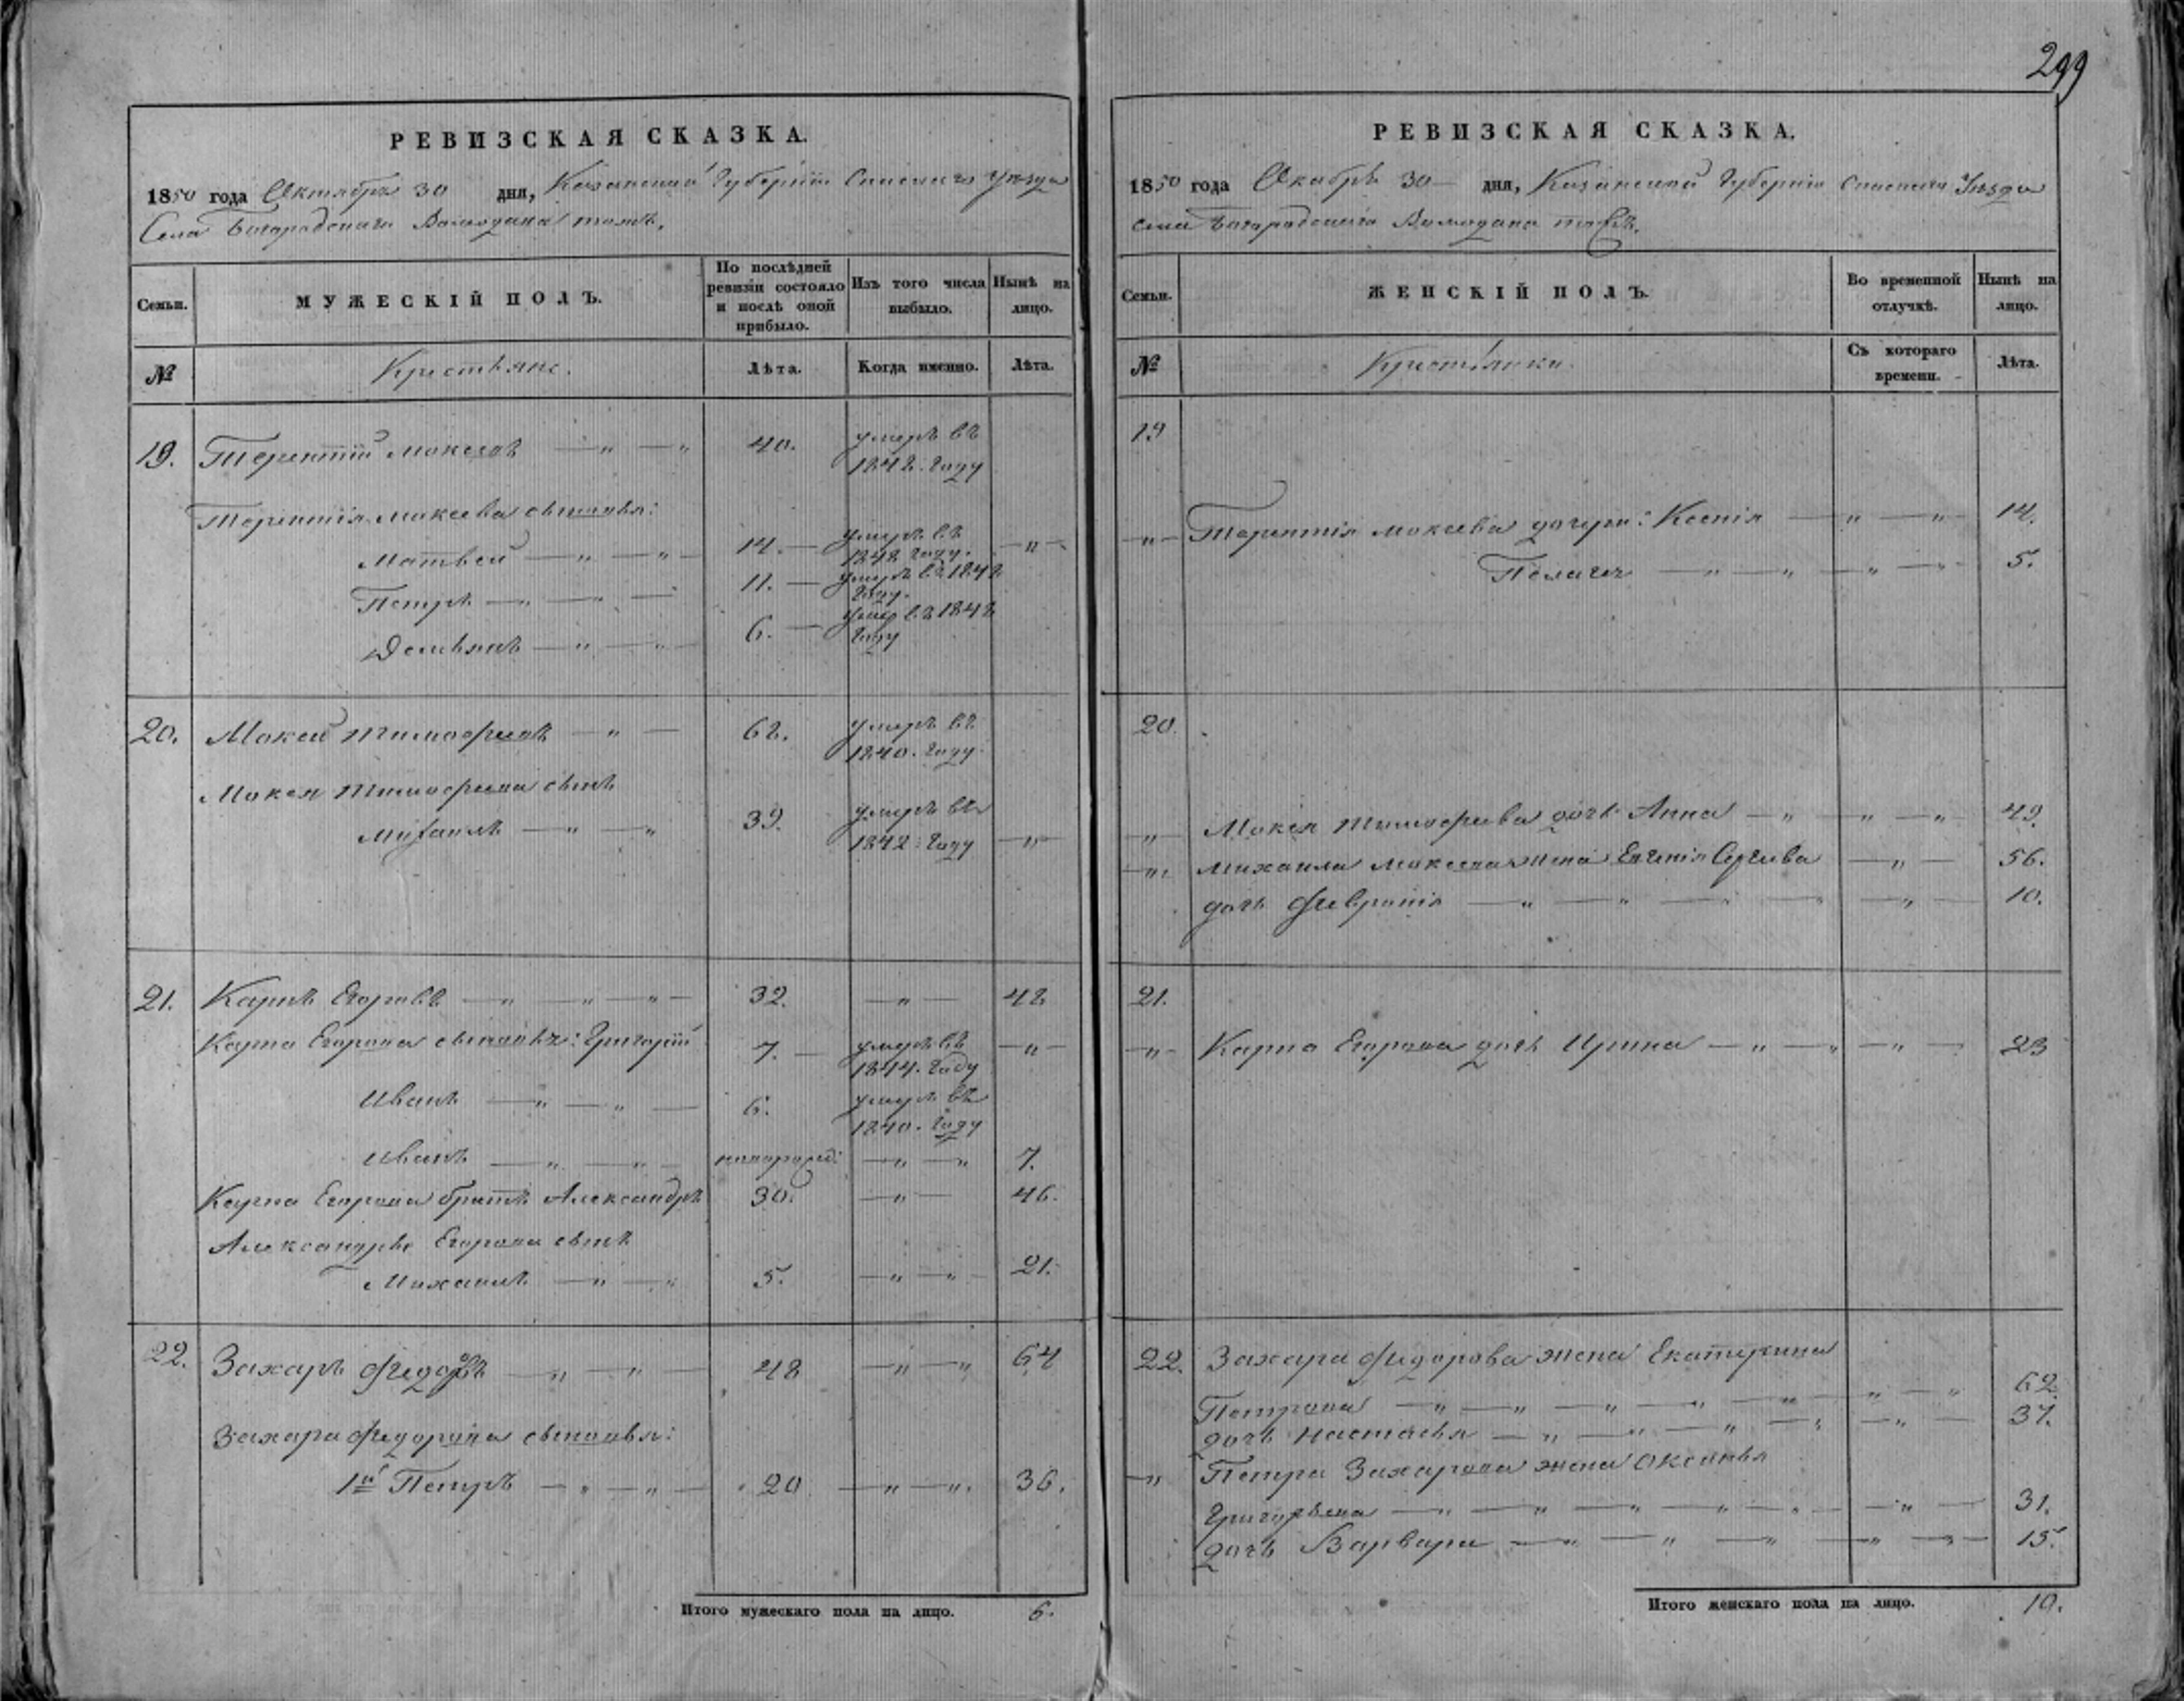 299
РЕВИЗСКАЯ СКАЗКА.
1850 года Октября 30 дня, Казанской Губернии Спаскаго Уезда
Села Богородскаго
МУЖЕСКІЙ ПОЛЪ.
Семьи.
По послѣдней ревизіи состояло и послѣ оной прибыло.
Изъ того числа выбыло.
Нынѣ на лицо.
№
Крестьяне.
Лѣта.
Когда именно.
Лѣта.
19. Терентій Мокеевъ — " — " 40. умеръ въ 1848. году
Терентія Мокеева сыновья:
Матвей — " — " 14. — умеръ въ 1848 году. — " —
Петръ — " — " — 11. — умеръ въ 1848 году.
Демьянъ — " — " 6. — умер въ 1848 году
20. Мокей Тимофеевъ — " — 68. умеръ въ 1840. году
Мокея Тимофеева сынъ
Михаилъ — " — " 39. умеръ въ 1842 году — " —
21. Карпъ Егоровъ — " — " — " — 32. — " — 48
Карпа Егорова сыновья: Григорій 7. — умеръ въ 1844. году — " —
Иванъ — " — " — 6. умеръ въ 1840. году
Иванъ — " — " — новорожд: — " — " 7.
Карпа Егорова братъ Александръ 30. — " — 46.
Александра Егорова сынъ
Михаилъ — " — " 5. — " — " — 21.
22. Захаръ Федоровъ — " — " — 48 — " — " 64
Захара Федорова сыновья:
1й Петръ — " — " — 20 — " — ". 36.
Итого мужескаго пола на лицо. 6.
РЕВИЗСКАЯ СКАЗКА.
1850 года 30 дня, Казанской Губерніи Спаскаго Уезда
села Богородскаго
Семьи.
ЖЕНСКІЙ ПОЛЪ.
Во временной отлучкѣ.
Нынѣ на лицо.
№
Крестьянки.
Съ котораго времени.
Лѣта.
19
" Терентія Мокеева дочери: Ксенія — " — " — 14.
Пелагея — " — " — " — " 5.
20.
" Мокея Тимофеева дочь Анна — " — " — " — 49.
" Михаила Мокеева жена Евгенія Сергеева — " — 56.
дочь Февронія — " — " — " — " — " — 10.
21.
" Карпа Егорова дочь Ирина — " — " — " — 23
22. Захара Федорова жена Екатерина
Петрова — " — " — " — " — " — " — " 62.
дочь Настасья — " — " — " — " — " — 37.
" Петра Захарова жена Оксинья
Григорьева — " — " — " — " — " — " — 31.
дочь Варвара — " — " — " — " — " — 15.
Итого женскаго пола на лицо. 10.